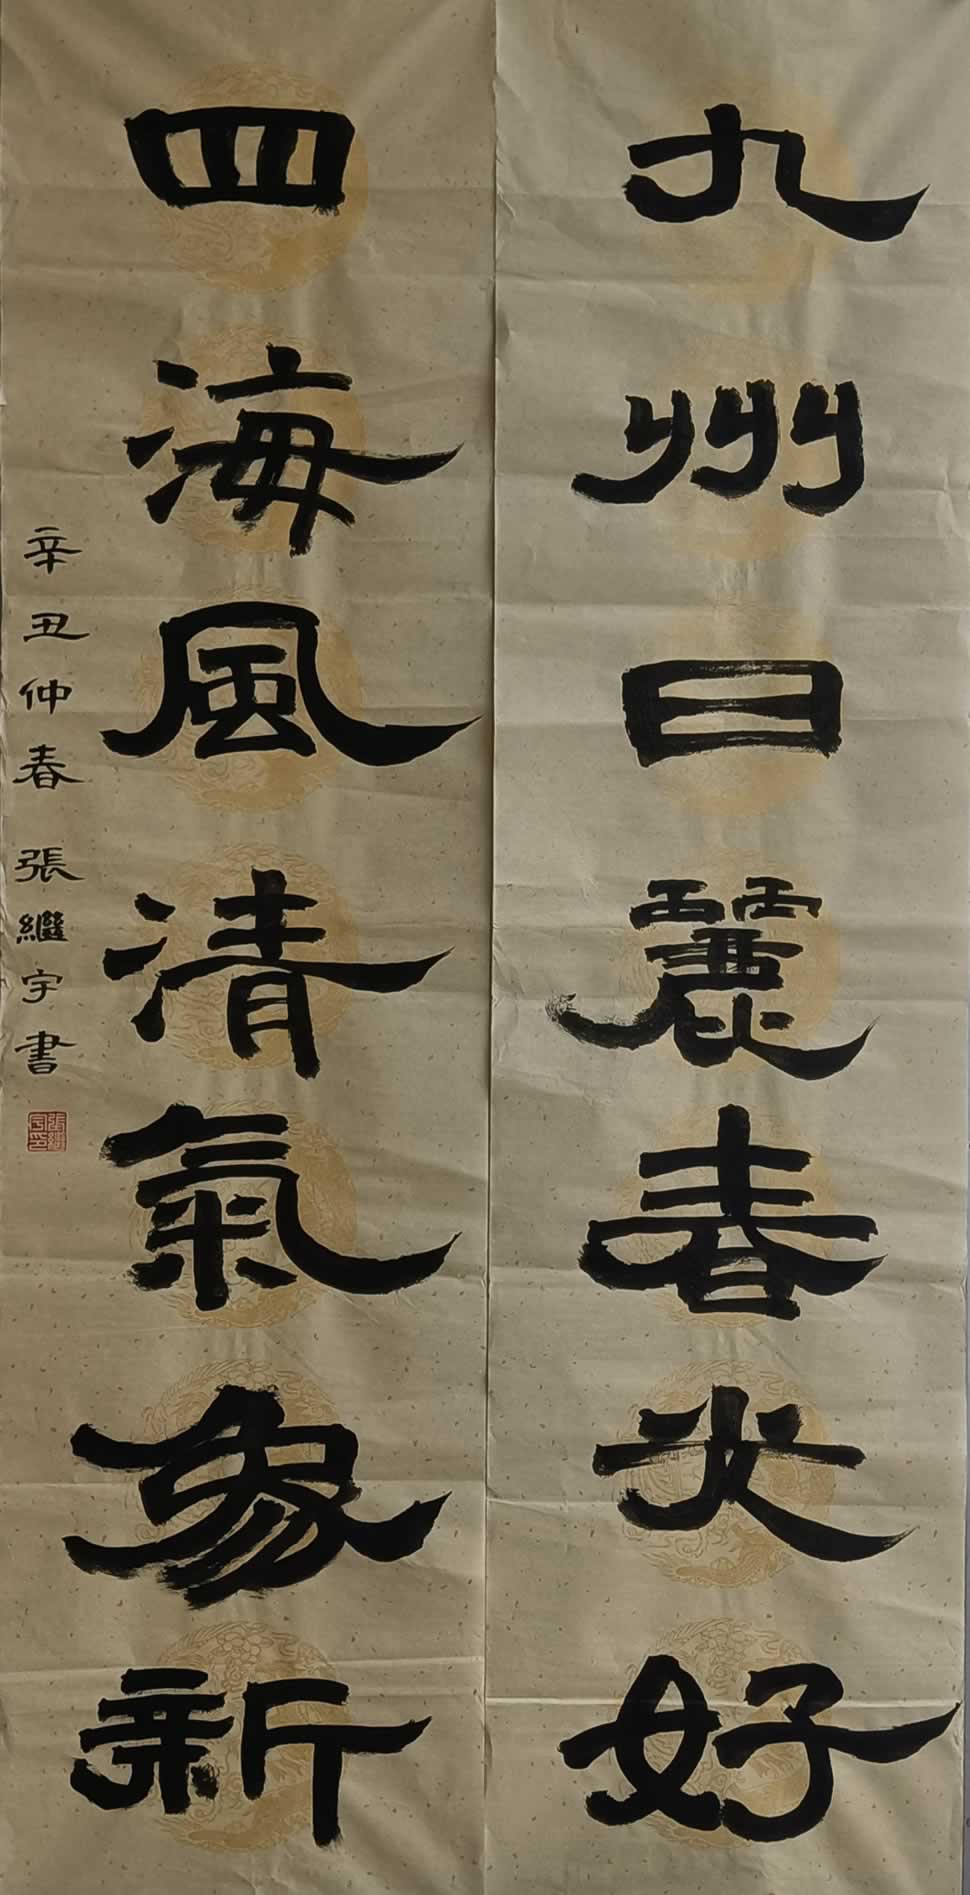 九州日麗春光好
四海風清氣象新
辛丑仲春 張繼宇書
張繼宇印